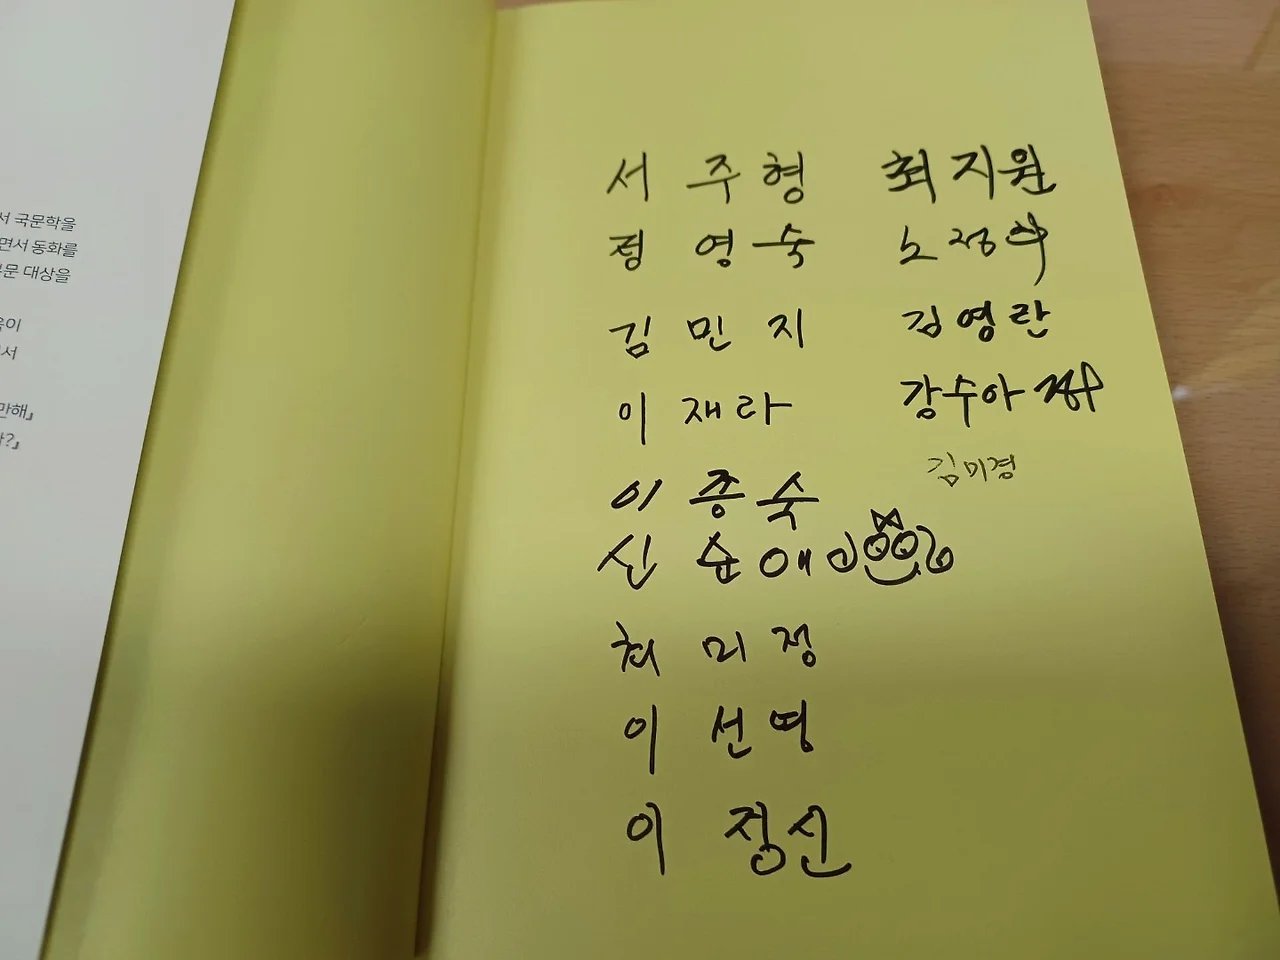 서 국문학을
면서 동화를
부문 대상을
육이
서
만해』
?』
서 주 형
정 영 숙
김 민 지
이 재 라
이 종 숙
신 순 애
최 미 정
이 선 영
이 정 신
최 지 원
노 정
김 영 란
강수아
김미경